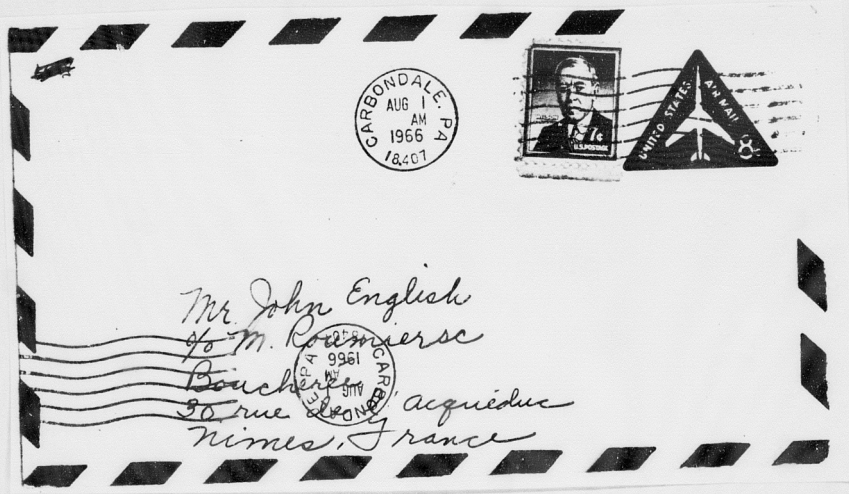 CARBONDALE, PA
AUG 1
AM
1966
18407
7¢
U.S. POSTAGE
UNITED STATES AIR MAIL
8¢
Mr. John English
c/o M. Roumiersc
Boucherie
30 rue de l'acqueduc
Nimes, France
CARBONDALE, PA
AUG
AM
1966
18407